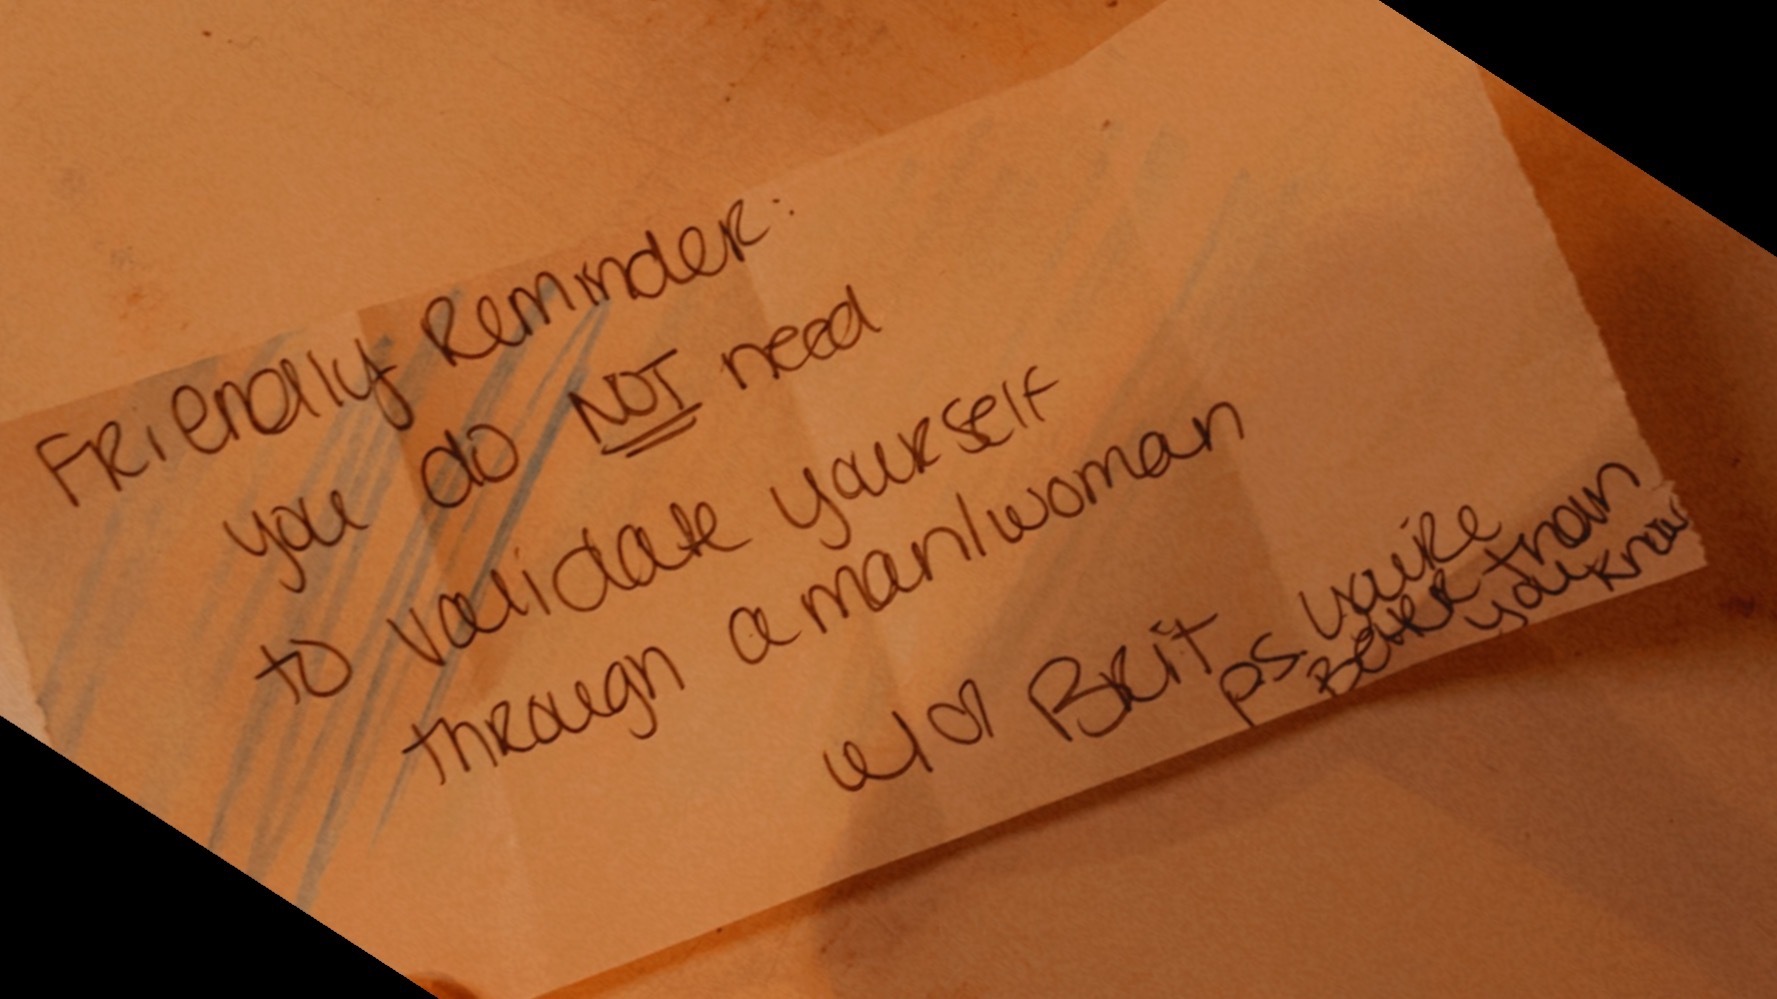 Friendly Reminder:
you do NOT need
to validate yourself
through a man/woman
Brit
ps.
Better than
you know